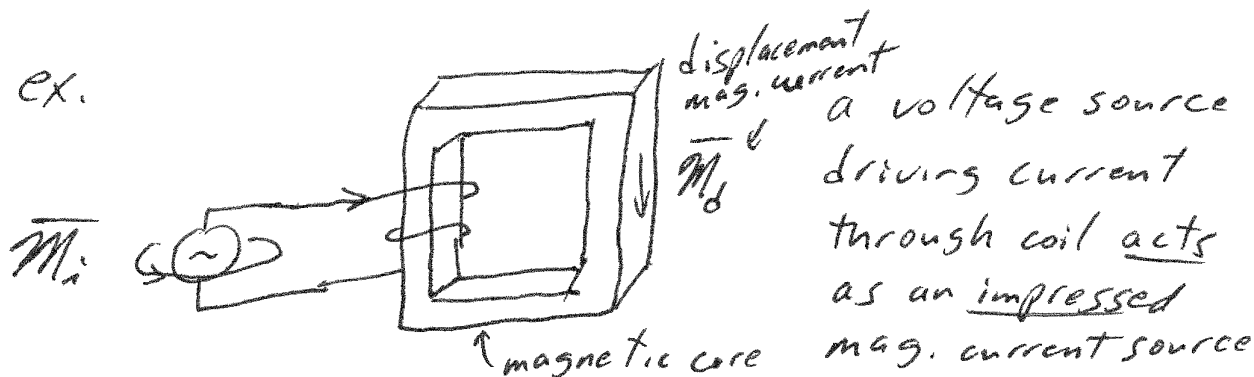 ex.
displacement
mag. current
M̅d
M̅i
~
magnetic core
a voltage source
driving current
through coil acts
as an impressed
mag. current source